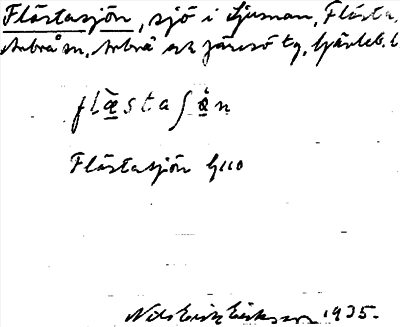 Flästasjön, sjö i Ljusnan, Flästa,
Arbrå sn, Arbrå ock Järvsö tg, Gävleb. l
flästasjön
Flästasjön G110
Nils Erik Eriksson 1935.